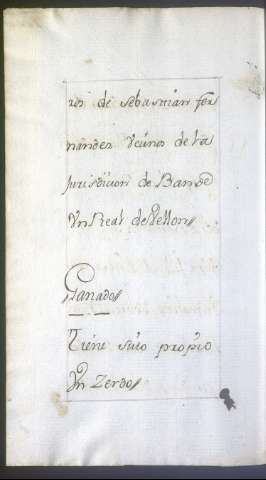 ros de Sebastian Fer
nandes Vecino de la
Jurisdicion de Bande
Un Real de Vellon
Ganados
Tiene suio propio
Un Zerdo